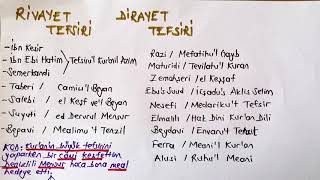 RİVAYET
TEFSİRİ
- İbn Kesir
- İbn Ebi Hatim
- Semerkandi
Tefsiru'l Kur'anil Azim
- Taberi / Camiu'l Beyan
- Salebi / el Keşf ve'l Beyan
- Suyuti / ed Dervul Mensur
- Begavi / Mealimu't Tenzil
KOD: Kur'anın büyük tefsirini
yaparken bir cami keşfettim
Mensur hoca bana meal
hediye etti.
DİRAYET
TEFSİRİ
Razi / Mefatihu'l Gayb
Maturidi / Tevilatu'l Kuran
Zemahşeri / el Keşşaf
Ebu's Suud / İrşadu'l Aklis Selim
Nesefi / Medariku't Tefsir
Elmalılı / Hak Dini Kur'an Dili
Beydavi / Envaru't Tenzil
Ferra / Meani'l Kuran
Alusi / Ruhu'l Meani